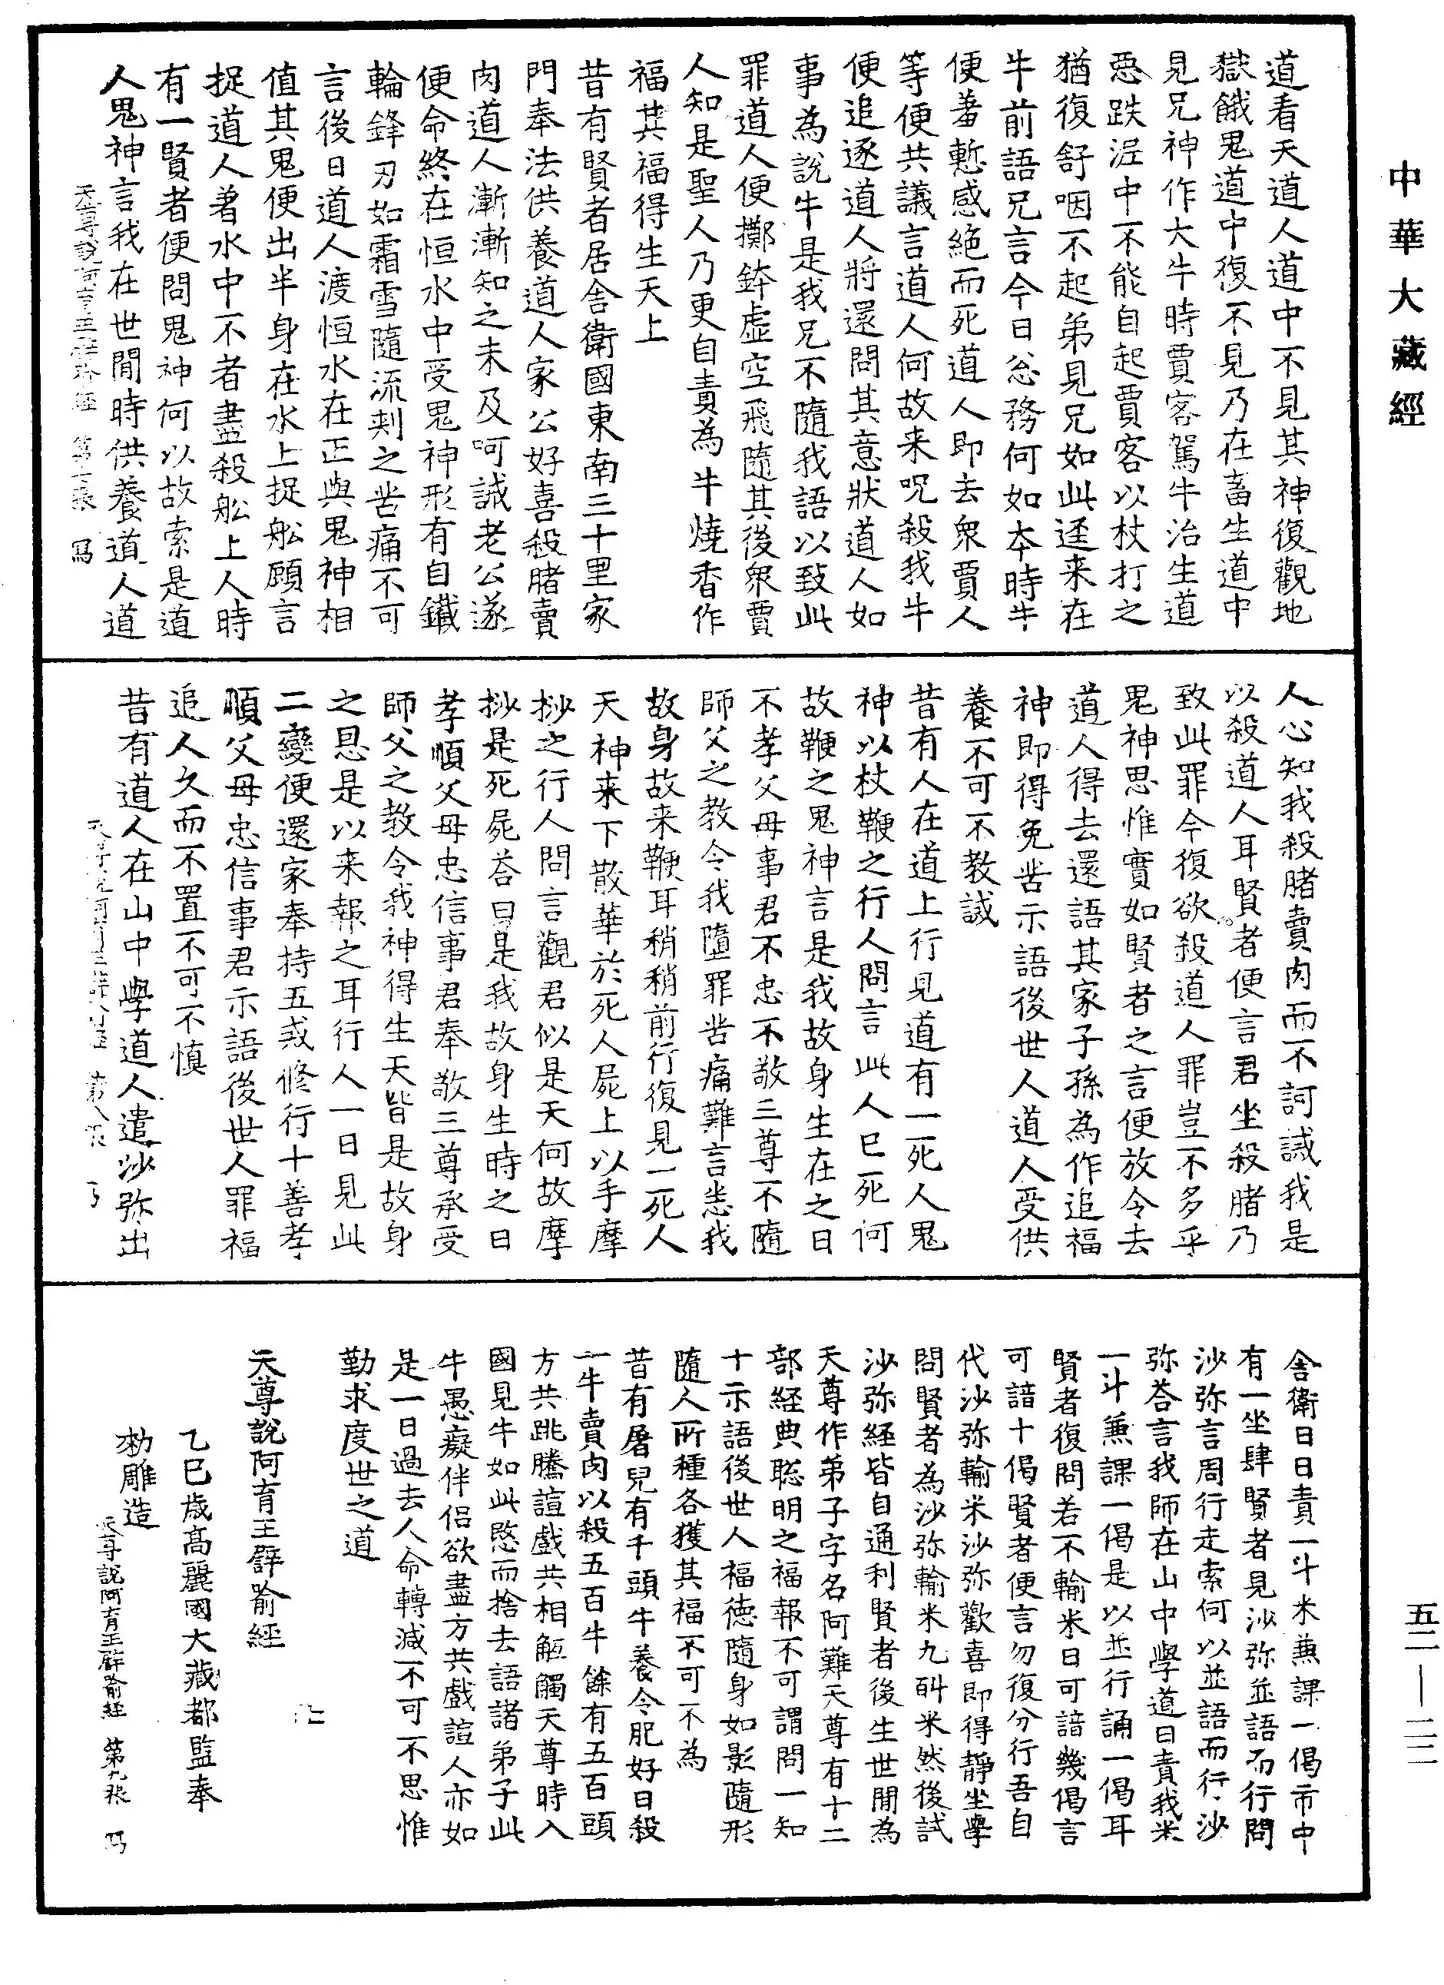 中華大藏經
道看天道人道中不見其神復觀地
獄餓鬼道中復不見乃在畜生道中
見兄神作大牛時賈客駕牛治生道
惡跌渥中不能自起賈客以杖打之
猶復舒咽不起弟見兄如此逕来在
牛前語兄言今日忩務何如本時牛
便羞慙感絶而死道人即去衆賈人
等便共議言道人何故来呪殺我牛
便追逐道人將還問其意狀道人如
事為說牛是我兄不隨我語以致此
罪道人便擲鉢虛空飛隨其後衆賈
人知是聖人乃更自責為牛燒香作
福其福得生天上
昔有賢者居舍衛國東南三十里家
門奉法供養道人家公好喜殺賭賣
肉道人漸漸知之未及呵誡老公遂
便命終在恒水中受鬼神形有自鐵
輪鋒刃如霜雪隨流剌之苦痛不可
言後日道人渡恒水在正與鬼神相
值其鬼便出半身在水上捉舩顧言
捉道人着水中不者盡殺舩上人時
有一賢者便問鬼神何以故索是道
人鬼神言我在世閒時供養道人道
天尊說阿育王譬喻經 第七張 写
人心知我殺賭賣肉而不訶誡我是
以殺道人耳賢者便言君坐殺賭乃
致此罪今復欲殺道人罪豈不多乎
鬼神思惟實如賢者之言便放令去
道人得去還語其家子孫為作追福
神即得免苦示語後世人道人受供
養不可不教誡
昔有人在道上行見道有一死人鬼
神以杖鞭之行人問言此人已死何
故鞭之鬼神言是我故身生在之日
不孝父母事君不忠不敬三尊不隨
師父之教令我墮罪苦痛難言恚我
故身故来鞭耳稍稍前行復見一死人
天神来下散華於死人屍上以手摩
抄之行人問言觀君似是天何故摩
抄是死屍荅曰是我故身生時之日
孝順父母忠信事君奉敬三尊承受
師父之教令我神得生天皆是故身
之恩是以来報之耳行人一日見此
二變便還家奉持五戒修行十善孝
順父母忠信事君示語後世人罪福
追人久而不置不可不慎
昔有道人在山中學道人遣沙弥出
天尊說阿育王譬喻經 第八張
舍衛日日責一斗米兼課一偈市中
有一坐肆賢者見沙弥並語而行問
沙弥言周行走索何以並語而行沙
弥荅言我師在山中學道日責我米
一斗兼課一偈是以並行誦一偈耳
賢者復問若不輸米日可諳幾偈言
可諳十偈賢者便言勿復分行吾自
代沙弥輸米沙弥歡喜即得靜坐學
問賢者為沙弥輸米九斛米然後試
沙弥経皆自通利賢者後生世閒為
天尊作弟子字名阿難天尊有十二
部経典聡明之福報不可謂問一知
十示語後世人福徳隨身如影隨形
隨人所種各獲其福不可不為
昔有屠兒有千頭牛養令肥好日殺
一牛賣肉以殺五百牛餘有五百頭
方共跳騰諠戲共相觝觸天尊時入
國見牛如此愍而捨去語諸弟子此
牛愚癡伴侶欲盡方共戲諠人亦如
是一日過去人命轉減不可不思惟
勤求度世之道
天尊說阿育王譬喻經
乙巳歲高麗國大藏都監奉
勑雕造
天尊說阿育王譬喻經 第九張 写
五二—二二